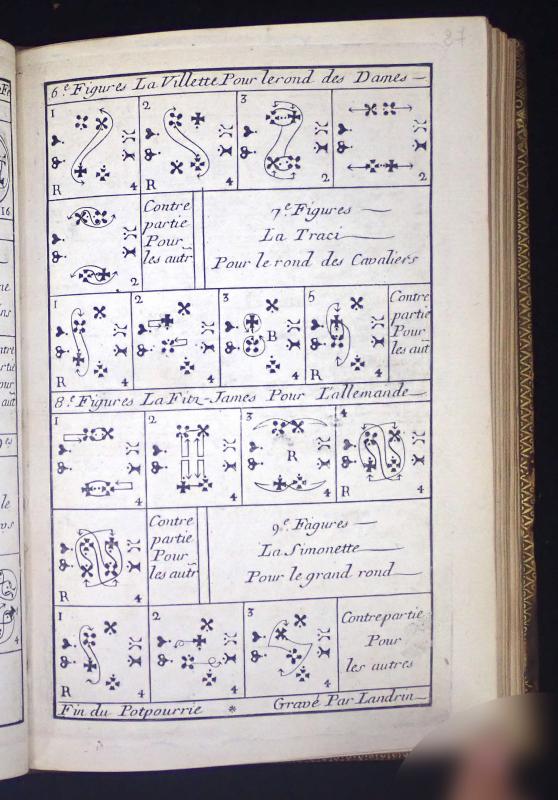 37
6.e Figures La Villette Pour lerond des Dames
1 2 3
R 4 4 2 2
Contre
partie
Pour
les autr
2
7.e Figures
La Traci
Pour le rond des Cavaliers
1 2 3 5
B
R 4 4 4 R 4
Contre
partie
Pour
les aut
8.e Figures La Fitz-James Pour L'allemande
1 2 3 4
R
4 4 4 R 4
R 4
Contre
partie
Pour
les autr
9.e Figures
La Simonette
Pour le grand rond
1 2 3
R 4 4 4
Contre partie
Pour
les autres
Fin du Potpourrie * Gravé Par Landrin
16
4